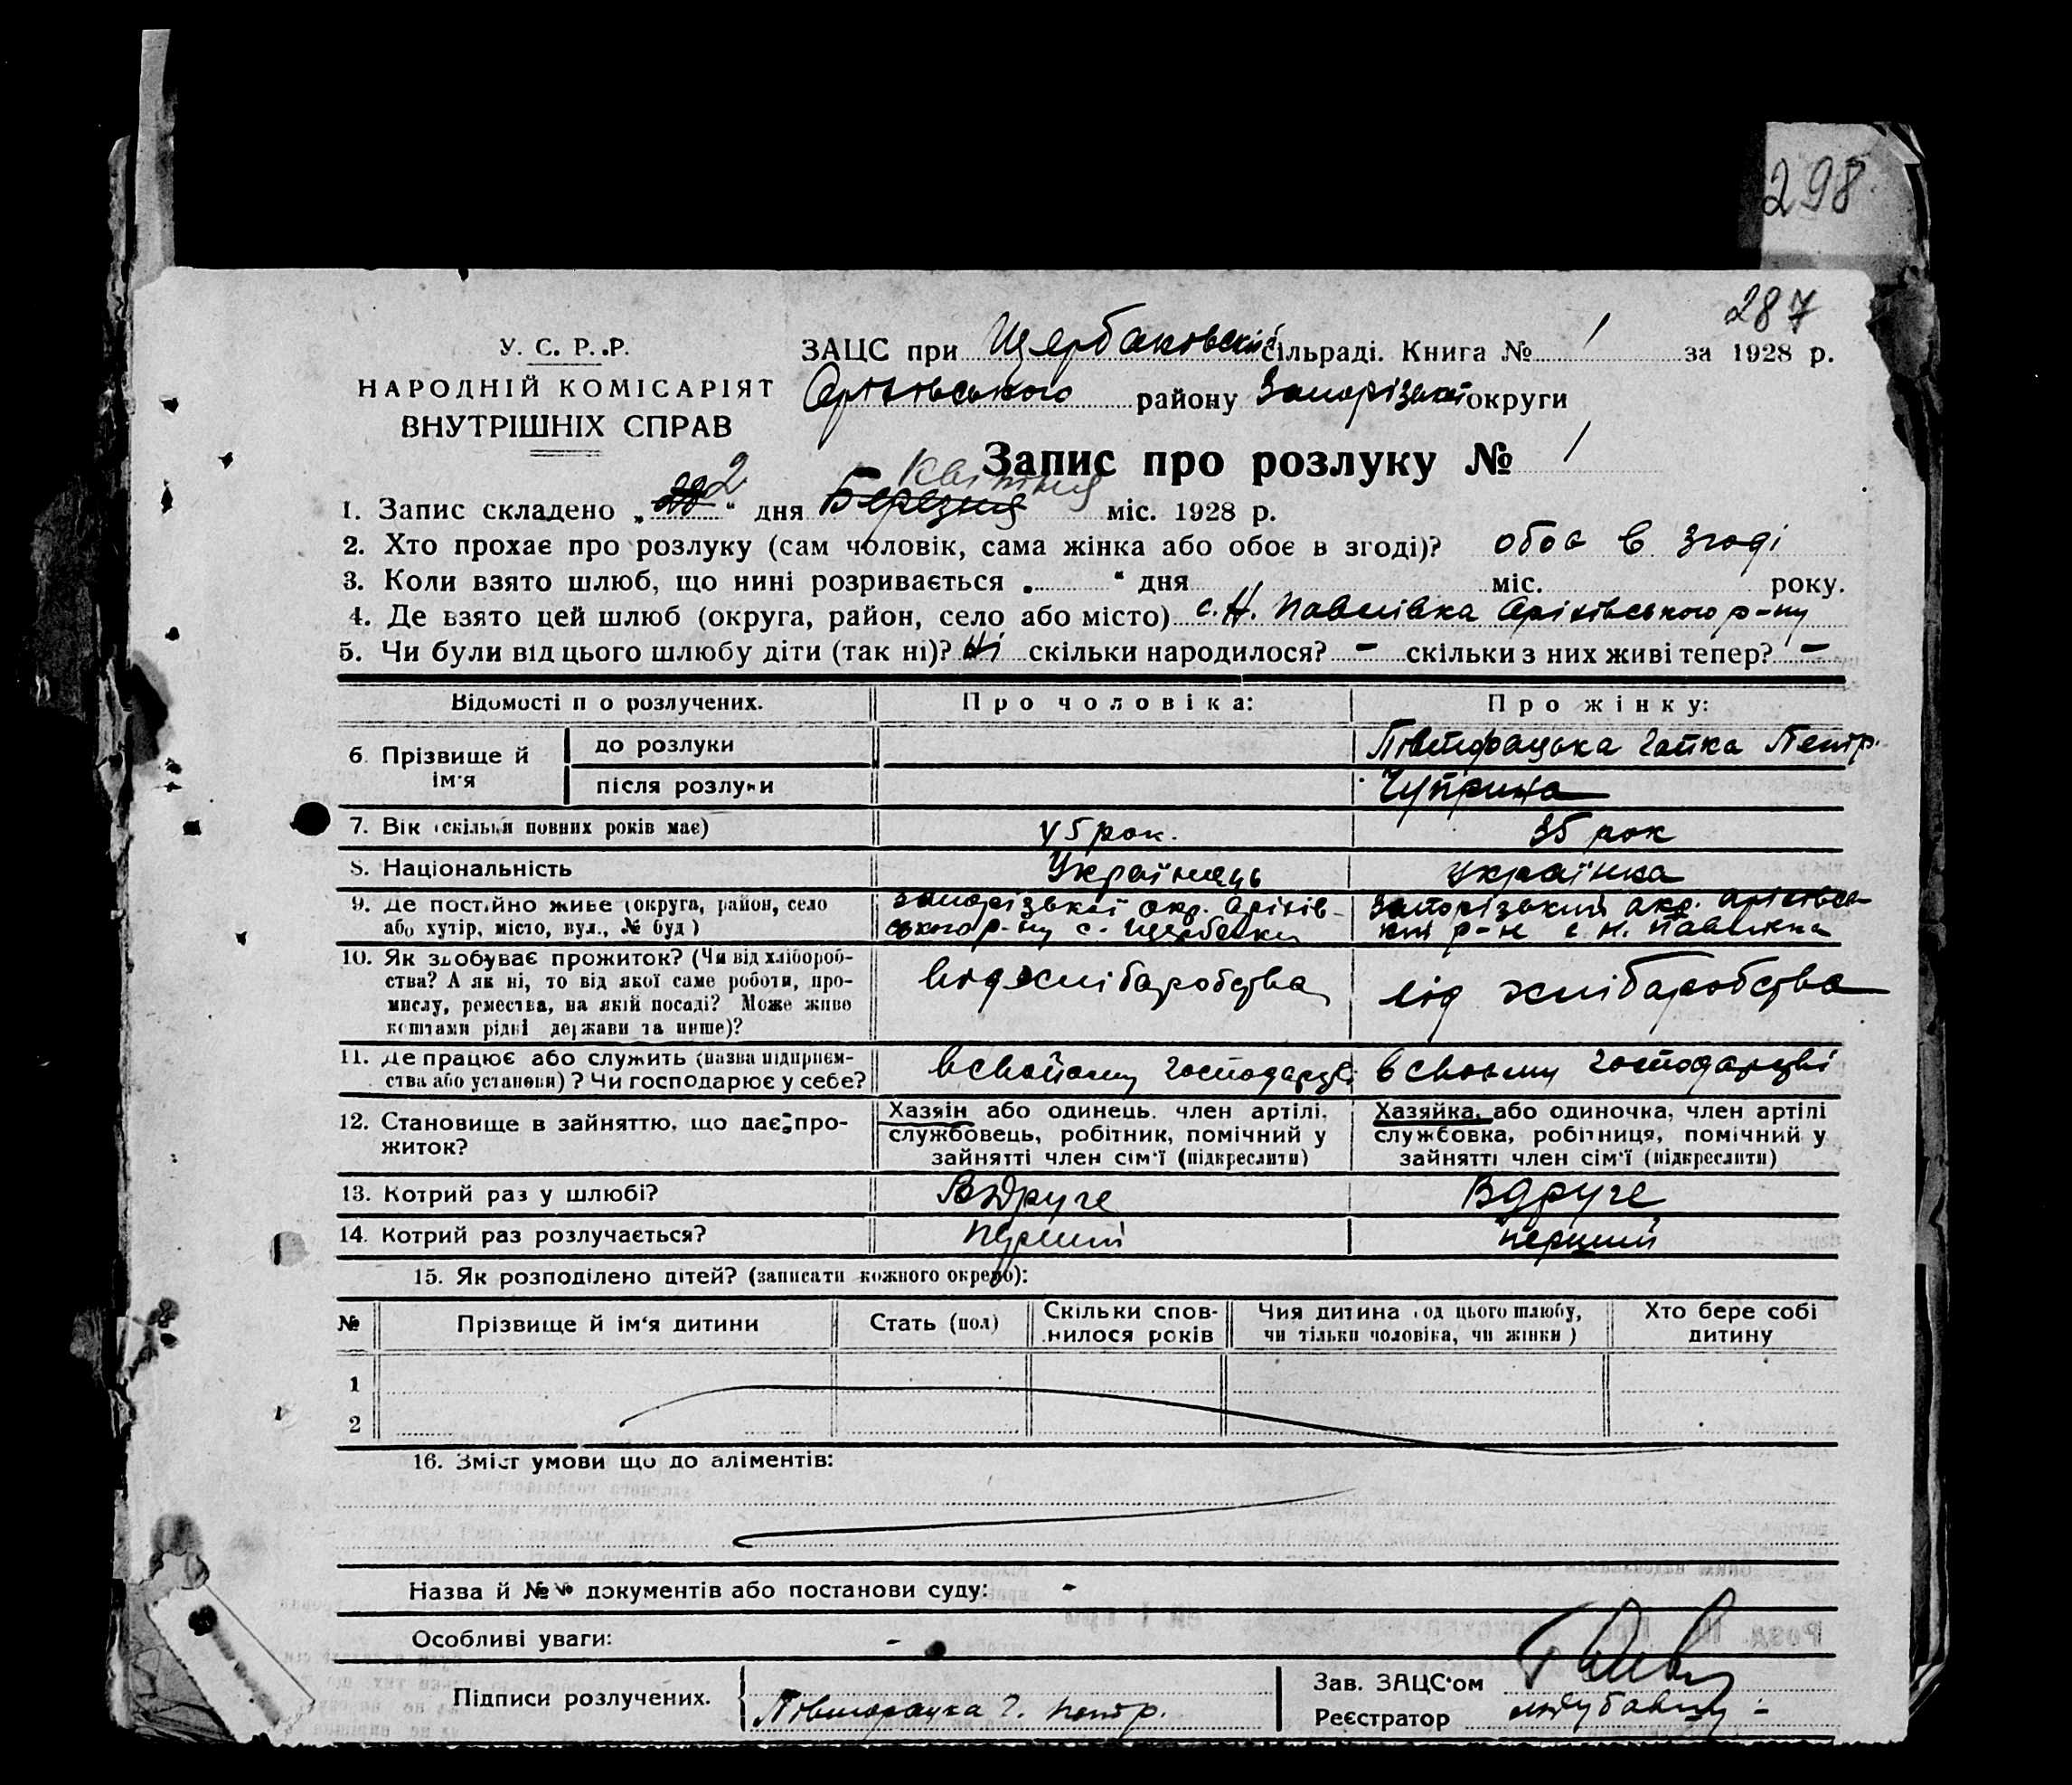 298
287
У. С. Р. Р.
НАРОДНІЙ КОМІСАРІЯТ
ВНУТРІШНІХ СПРАВ
ЗАЦС при Щербаковскій сільраді. Книга № 1 за 1928 р.
Оріхівського району Запорізької округи
Запис про розлуку № 1
1. Запис складено „ 2 “ дня Березня Квітня міс. 1928 р.
2. Хто прохає про розлуку (сам чоловік, сама жінка або обоє в згоді)? обоє в згоді
3. Коли взято шлюб, що нині розривається „ “ дня міс. року.
4. Де взято цей шлюб (округа, район, село або місто) с. Н. Павлівка Оріхівського р-ну
5. Чи були від цього шлюбу діти (так ні)? Ні скільки народилося? - скільки з них живі тепер? -
Відомості п о розлучених. Про чоловіка: Про жінку:
6. Прізвище й ім'я до розлуки Повторацька Гапка Петр.
після розлуки Чуприна
7. Вік (скільки повних років має) 45 рок. 35 рок
8. Національність Українець українка
9. Де постійно живе (округа, район, село або хутір, місто, вул., № буд) Запорізької окр. Оріхівського р-ну с. Щербаки Запорізький окр. Оріхівський р-н с Н. Павлівка
10. Як здобуває прожиток? (Чи від хлібороб-
ства? А як ні, то від якої саме роботи, про-
мислу, ремества, на якій посаді? Може живе
коштами рідні держави та инше)? від хлібаробства від хлібаробства
11. Де працює або служить (назва підприєм-
ства або установи)? Чи господарює у себе? в свойому господарцві в своєму господарцві
12. Становище в зайняттю, що дає про-
житок?
Хазяін або одинець, член артілі, службовець, робітник, помічний у зайнятті член сім'ї (підкреслити)
Хазяйка, або одиночка, член артілі службовка, робітниця, помічний у зайнятті член сім'ї (підкреслити)
13. Котрий раз у шлюбі? Вдруге Вдруге
14. Котрий раз розлучається? перший перший
15. Як розподілено дітей? (записати кожного окремо):
№ Прізвище й ім'я дитини Стать (пол) Скільки спов-
нилося років Чия дитина (од цього шлюбу,
чи тільки чоловіка, чи жінки) Хто бере собі
дитину
1
2
16. Зміст умови що до аліментів:
Назва й №№ документів або постанови суду: -
Особливі уваги: -
Підписи розлучених. Повторацка Г. Петр.
Зав. ЗАЦС'ом
Реєстратор